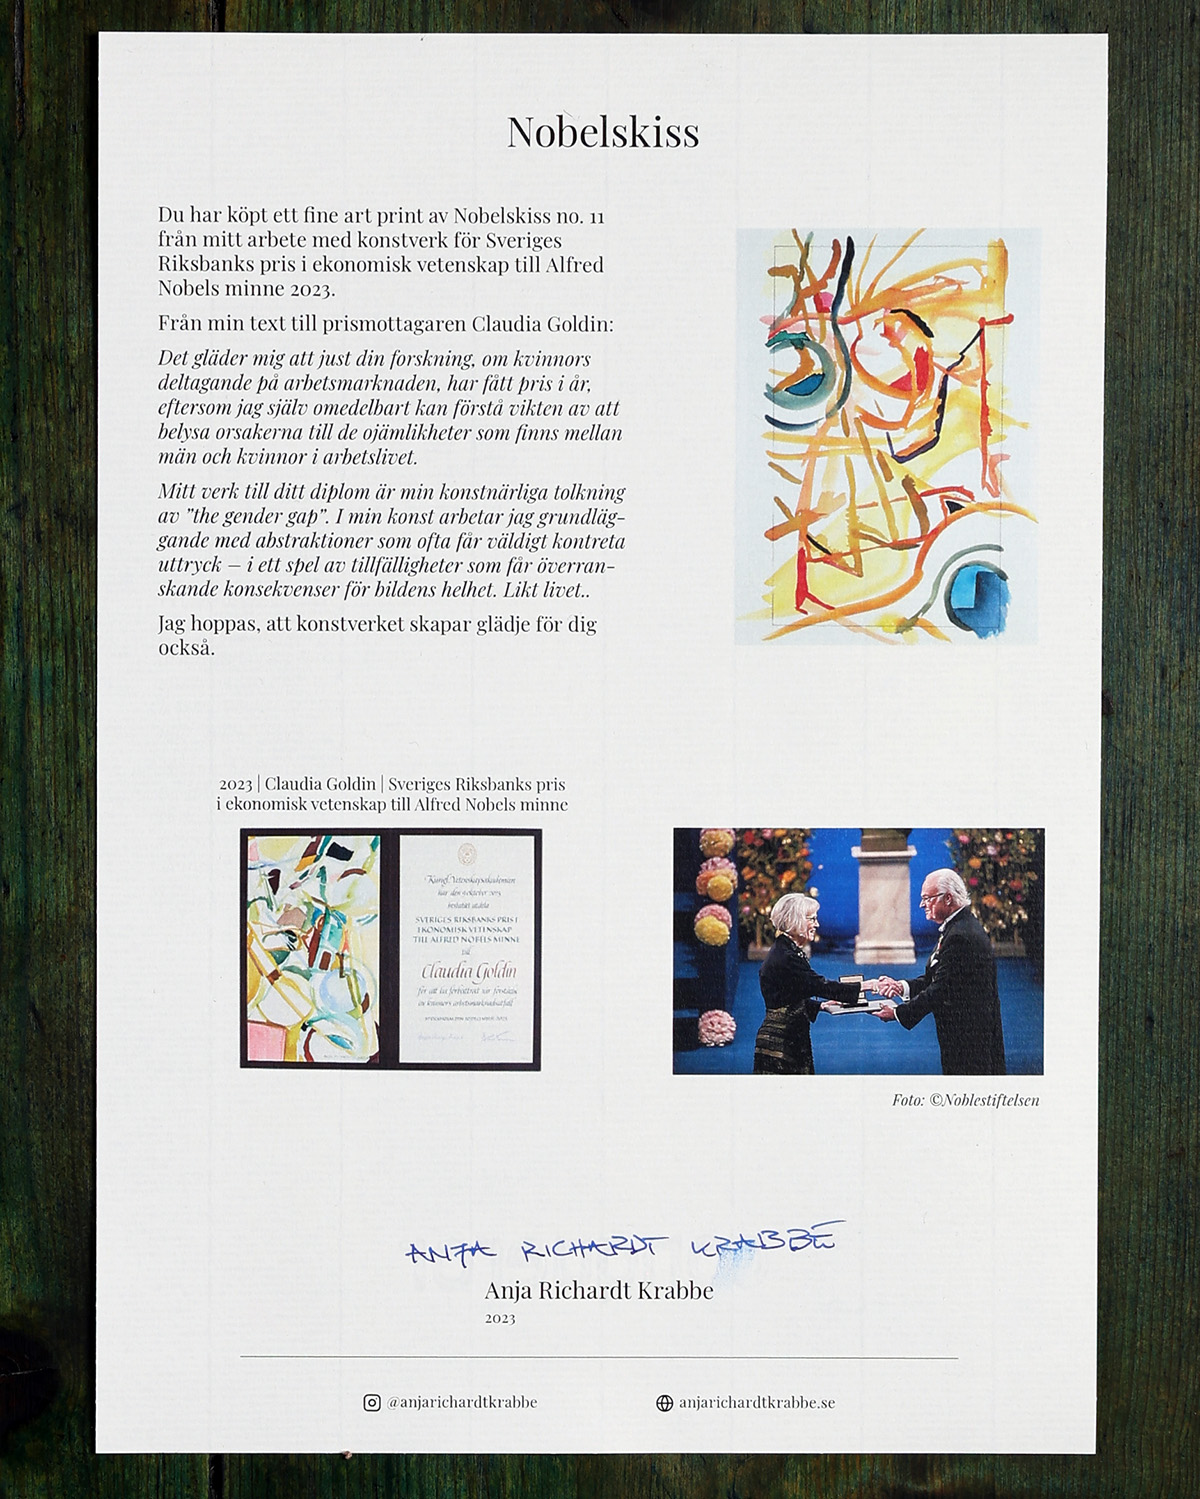 Nobelskiss
Du har köpt ett fine art print av Nobelskiss no. 11
från mitt arbete med konstverk för Sveriges
Riksbanks pris i ekonomisk vetenskap till Alfred
Nobels minne 2023.
Från min text till prismottagaren Claudia Goldin:
Det gläder mig att just din forskning, om kvinnors
deltagande på arbetsmarknaden, har fått pris i år,
eftersom jag själv omedelbart kan förstå vikten av att
belysa orsakerna till de ojämlikheter som finns mellan
män och kvinnor i arbetslivet.
Mitt verk till ditt diplom är min konstnärliga tolkning
av ”the gender gap”. I min konst arbetar jag grundläg-
gande med abstraktioner som ofta får väldigt kontreta
uttryck – i ett spel av tillfälligheter som får överran-
skande konsekvenser för bildens helhet. Likt livet..
Jag hoppas, att konstverket skapar glädje för dig
också.
2023 | Claudia Goldin | Sveriges Riksbanks pris
i ekonomisk vetenskap till Alfred Nobels minne
Kungl. Vetenskapsakademien
har den 9 oktober 2023
beslutat utdela
SVERIGES RIKSBANKS PRIS I
EKONOMISK VETENSKAP
TILL ALFRED NOBELS MINNE
till
Claudia Goldin
för att ha förbättrat vår förståelse
av kvinnors arbetsmarknadsutfall
Foto: ©Noblestiftelsen
ANJA RICHARDT KRABBE
Anja Richardt Krabbe
2023
@anjarichardtkrabbe
anjarichardtkrabbe.se